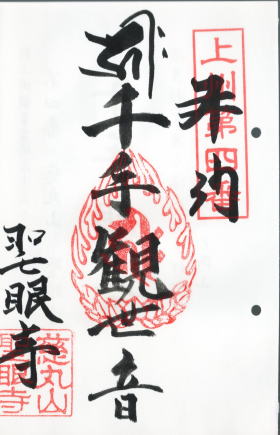 奉納
上州第四番
千手観世音
聖眼寺
丸山
聖眼寺